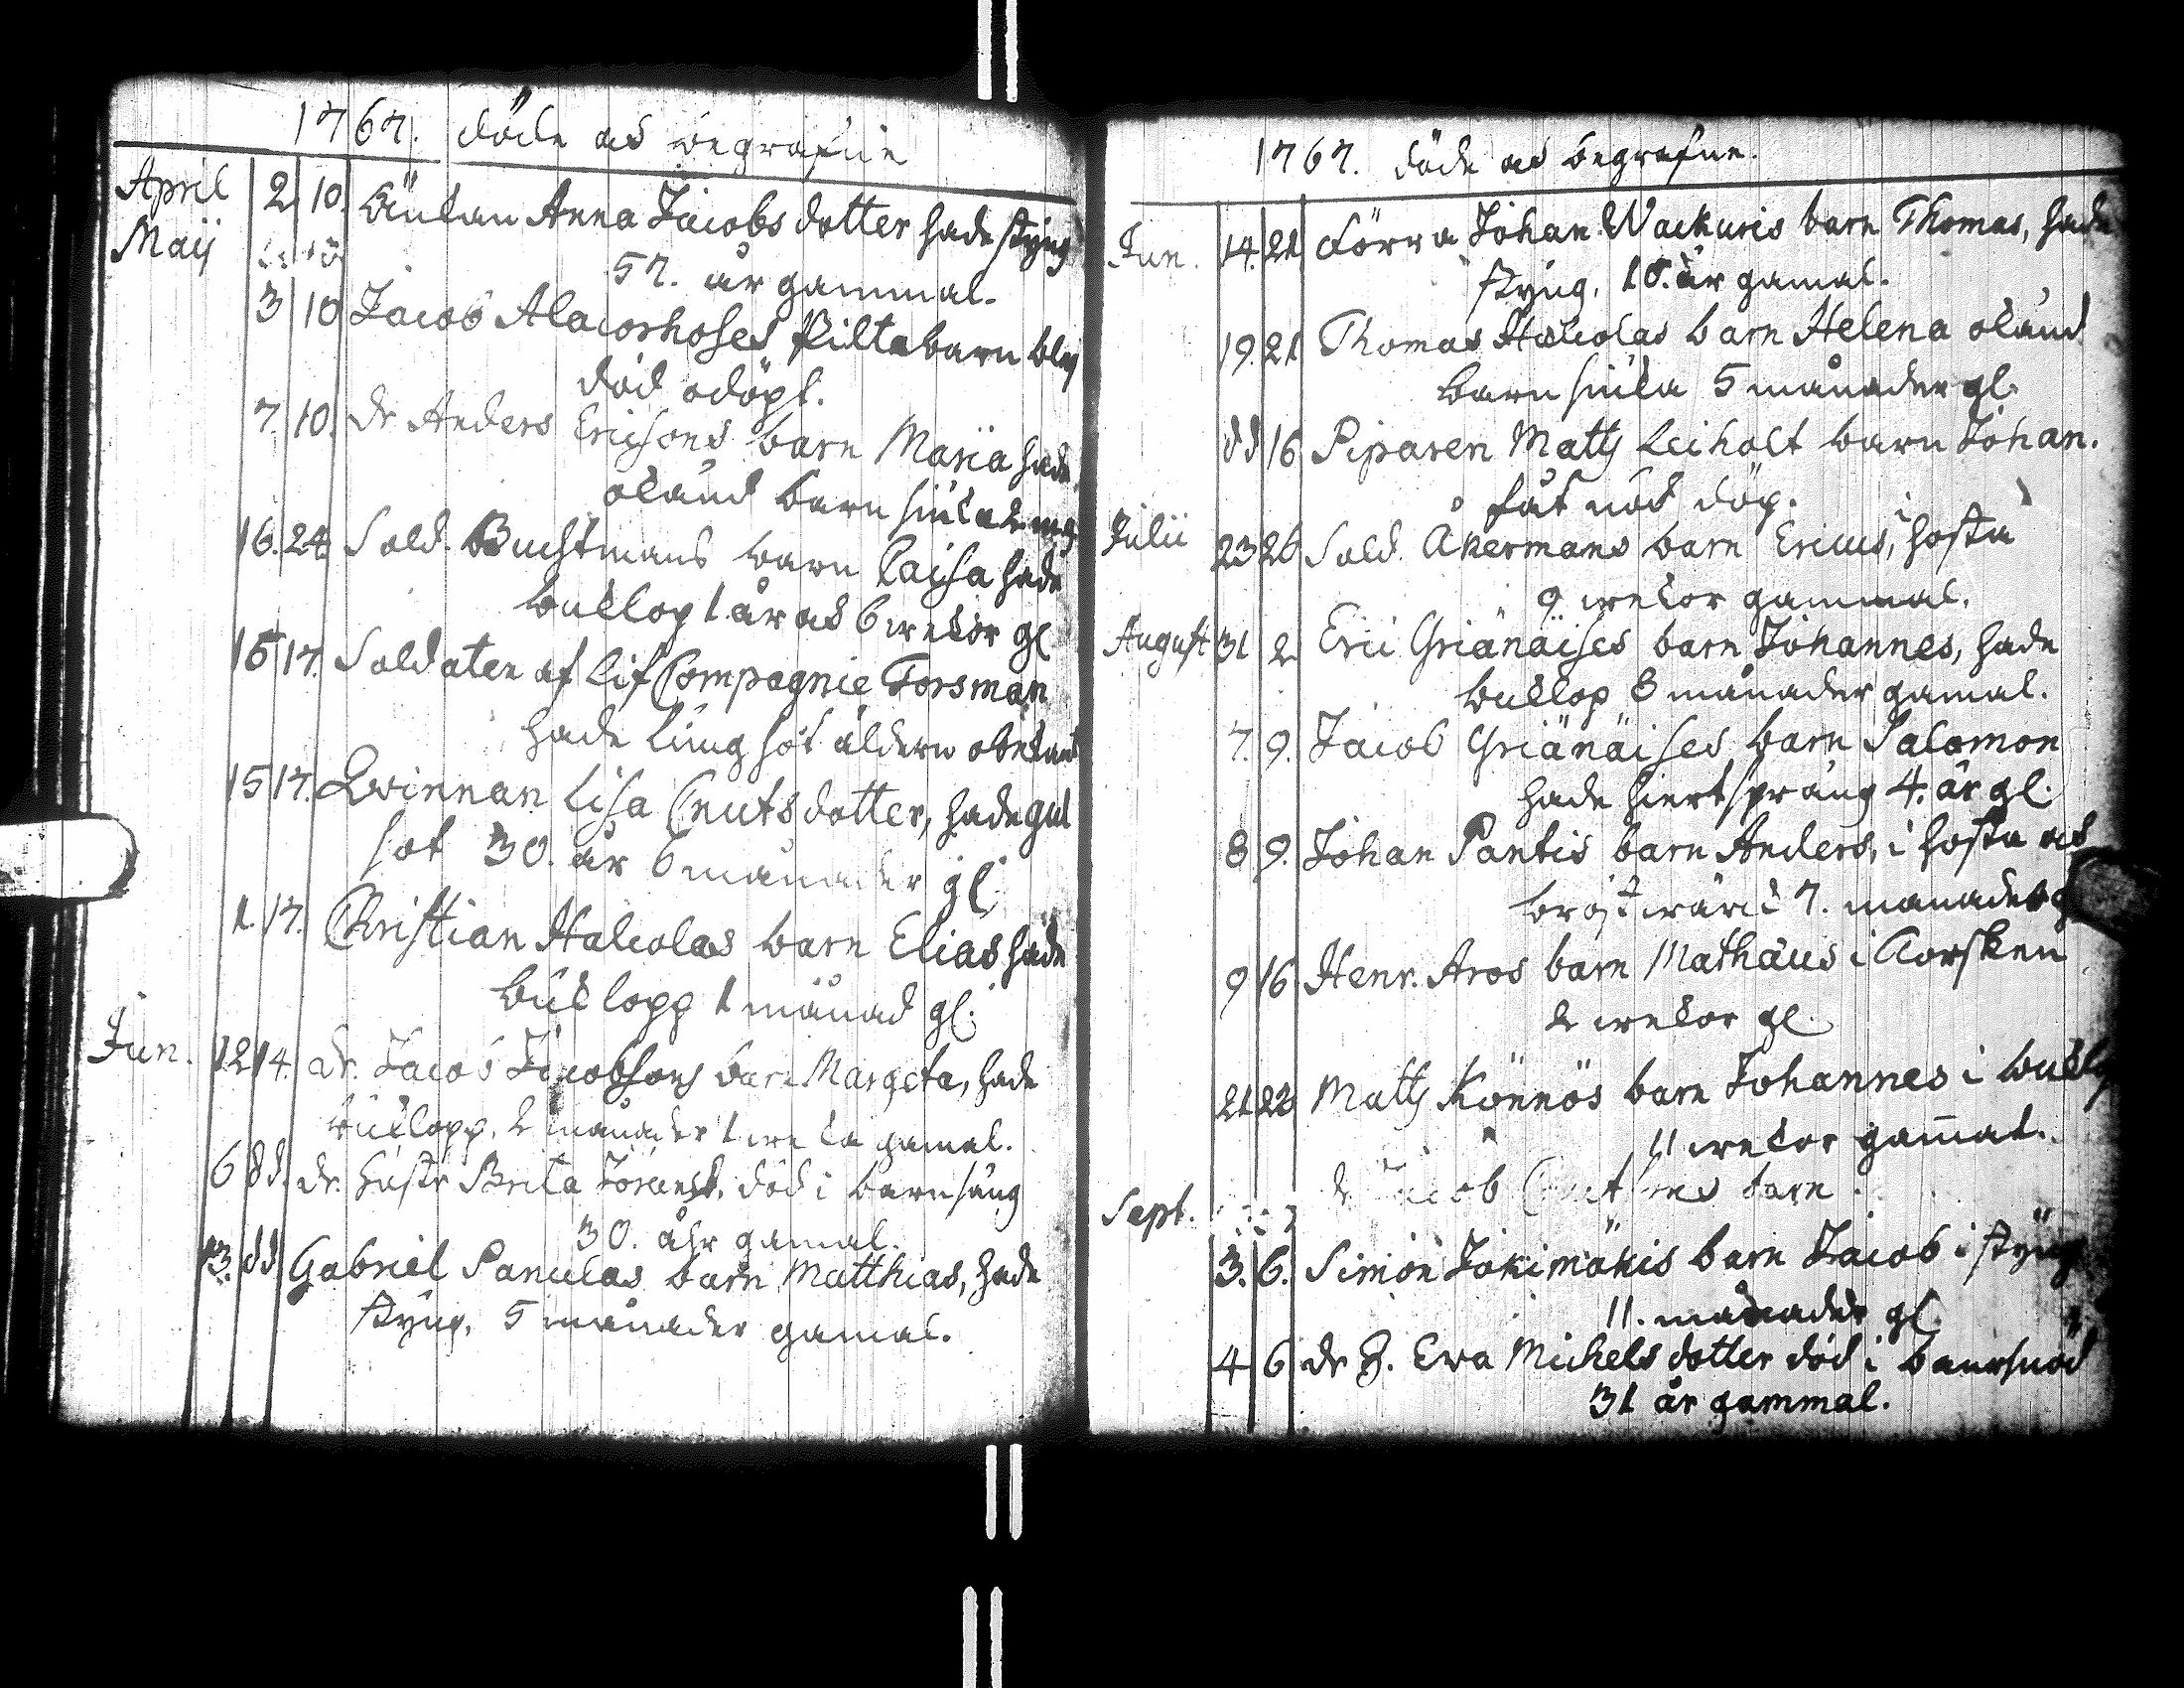 1767. döde och begrafne
April 2 10. Änkan Anna Jacobs dotter hade styng
Maij 57. år gammal.
3 10 Jacob Alaiorhoses Piltebarn blef
död odöpt.
7. 10. dr Anders Ericsons barn Maria hade
okänd barn siuka
16. 24 Sold. Buchtmans barn Caisa hade
buklop 1. år och 6 wekor gl
15 17. Soldaten af Lif Compagnie Forsman
hade lung sot åldern obekant
15 17. Qvinnan Lisa Cnuts dotter, hade gul
sot 30. år 6 månader gl.
1. 17. Christian Halcolas barn Elias hade
buklopp 1 månad gl.
Jun. 12 14. dr. Jacob Jacobsons barn Margeta, hade
buklopp. 2 månader 1 weka gamal.
6 dd. dr. hustr Brita död i barnsäng
30. åhr gamal.
13. dd Gabriel Panulas barn Matthias, hade
styng, 5 månader gamal.
1767. döde och begrafne.
Jun. 14. 21 Förra Johan Wackuris barn Thomas, hade
styng, 10. år gamal.
19. 21 Thomas Halcolas barn Helena okänd
barn siuka 5 månader gl.
dd 16 Piparen Matts Leiholt barn Johan.
fåt nöd döp.
Julii 23 26 Sold. Åkermans barn Ericus, i hosta
9 wekor gammal.
August 31 2 Erii Griänäises barn Johannes, hade
buklop 8 månader gamal.
7. 9. Jacob Griänäises barn Salomon
hade hiertsprång 4. år gl.
8 9. Johan Pantis barn Anders, i hosta och
bröstwärck 7. månader
9 16. Henr. Aros barn Mathäus i Torsken
2 wekor gl.
21 23 Matts Könnös barn Johannes i buklop
11 wekor gamal.
Sept. Jacob barn
3. 6. Simon Jokimäkis barn Jacob i styng
11. månader gl.
4 6 dr H. Ewa Michels dotter död i barnsnöd
31 år gammal.